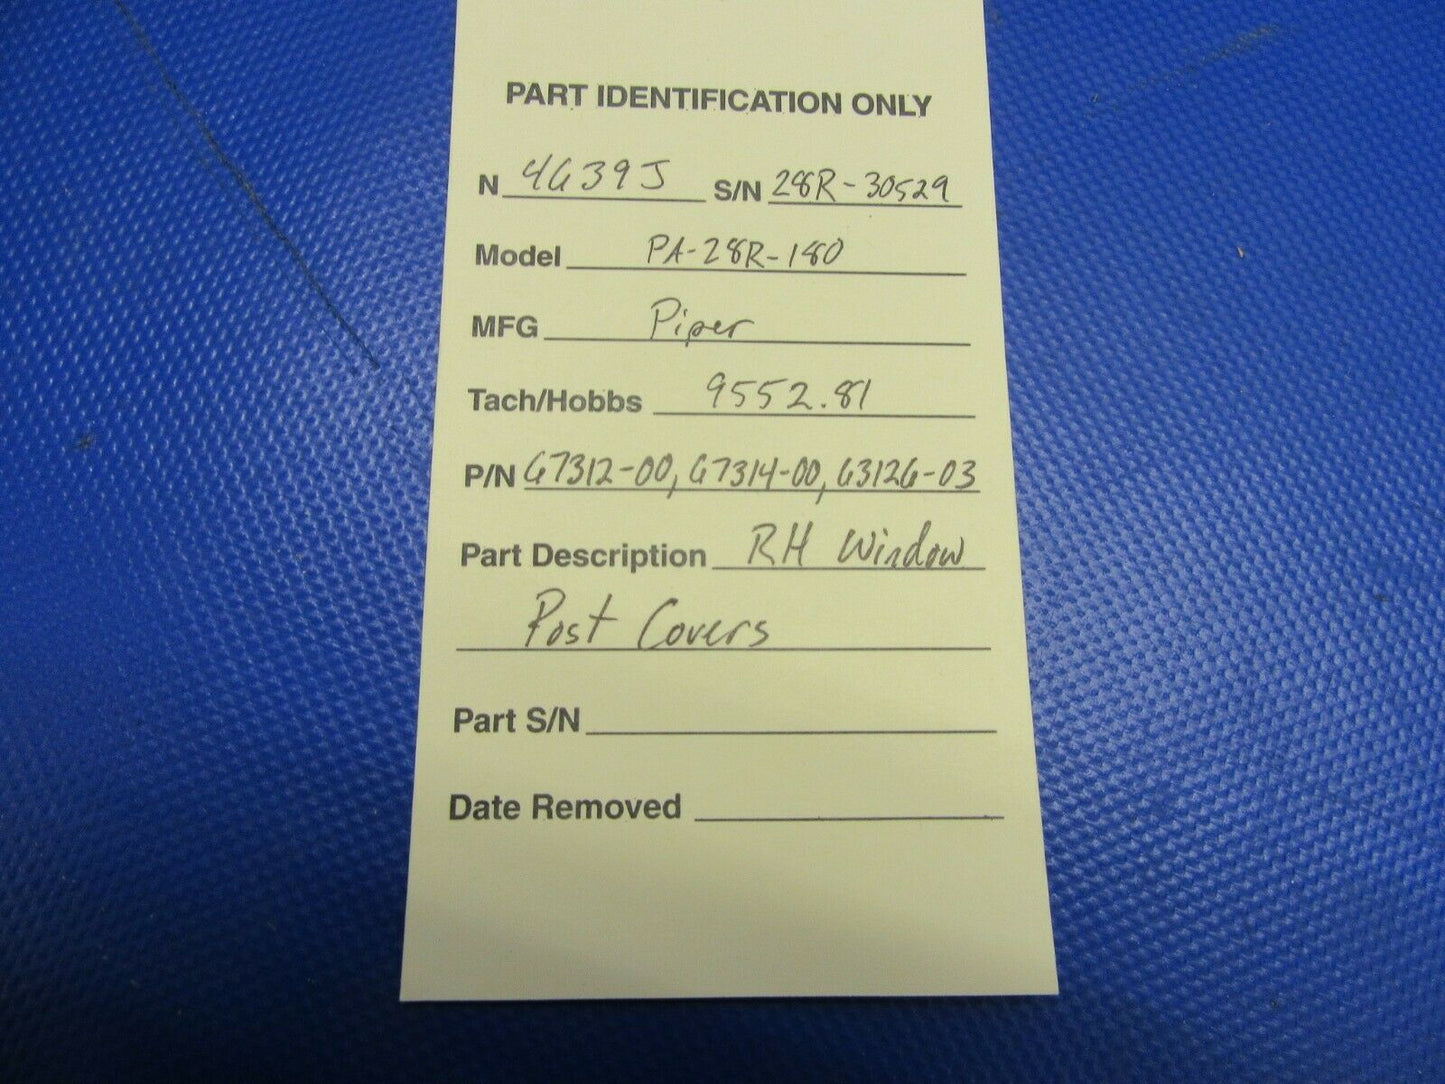 PART IDENTIFICATION ONLY
N 4639J S/N 28R-30529
Model PA-28R-180
MFG Piper
Tach/Hobbs 9552.81
P/N 67312-00, 67314-00, 63126-03
Part Description RH Window
Post Covers
Part S/N
Date Removed